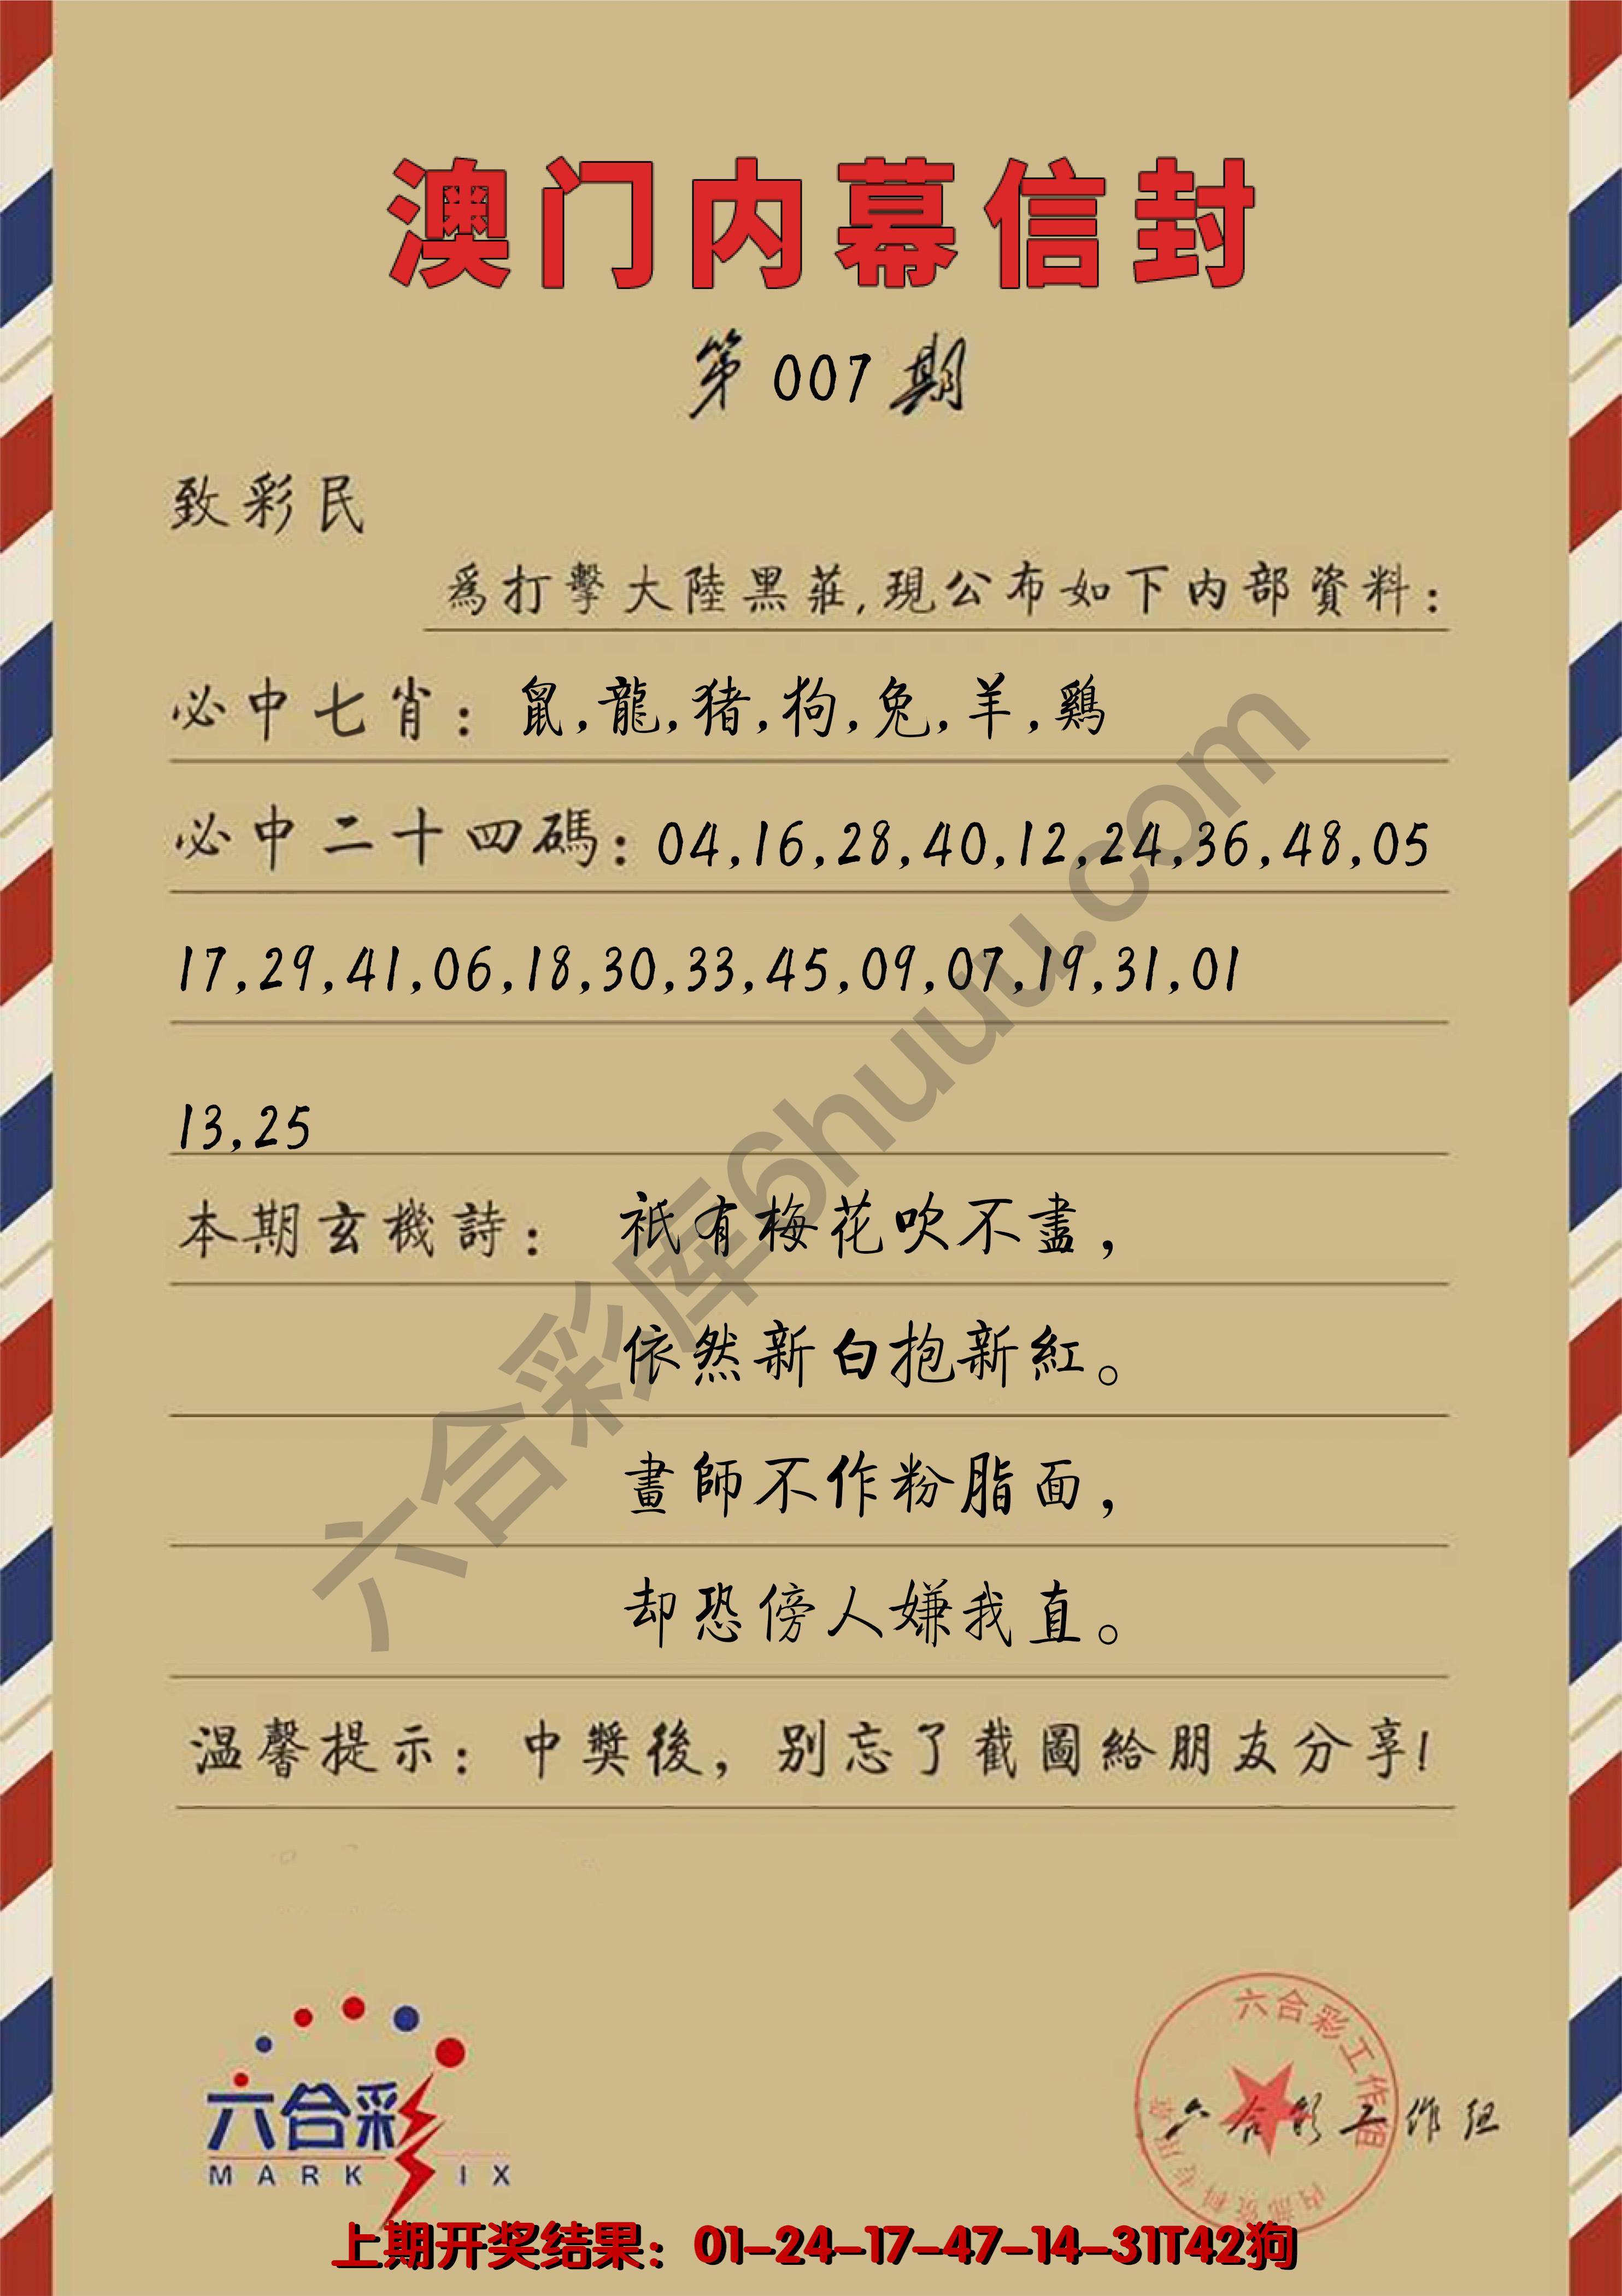 澳门内幕信封
第007期
致彩民
為打擊大陸黑莊,現公布如下内部資料:
必中七肖: 鼠,龍,猪,狗,兔,羊,鷄
必中二十四碼: 04,16,28,40,12,24,36,48,05
17,29,41,06,18,30,33,45,09,07,19,31,01
13,25
本期玄機詩: 祇有梅花吹不盡,
依然新白抱新紅。
畫師不作粉脂面,
却恐傍人嫌我直。
温馨提示: 中獎後, 别忘了截圖給朋友分享!
六合彩库6huuu.com
六合彩
MARK IX
六合彩工作组
内部资料专用章
六合彩工作组
上期开奖结果: 01-24-17-47-14-31T42狗